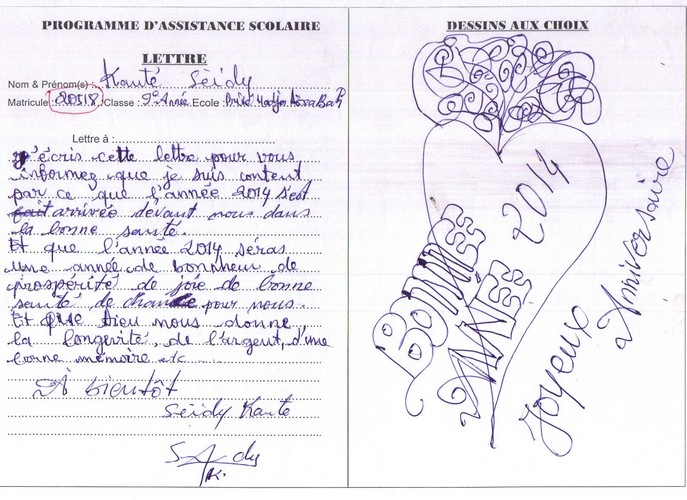 PROGRAMME D'ASSISTANCE SCOLAIRE
LETTRE
Nom & Prénom(s) : Kanté Sèidy
Matricule : 20518 Classe : 9e Année Ecole : Privé Hadja
Lettre à :
j'écris cette lettre pour vous
informez que je suis content
par ce que l'année 2014 s'est
fait arrivée devant nous dans
la bonne santé.
Et que l'année 2014 séras
une année de bonheur de
prospérité de joie de bonne
santé de chance pour nous.
Et que Dieu nous donne
la longerité, de l'argent, d'une
bonne mémoire etc
À bientôt
Sèidy Kanté
DESSINS AUX CHOIX
BONNES
ANNÉES 2014
Joyeux Anniversaire